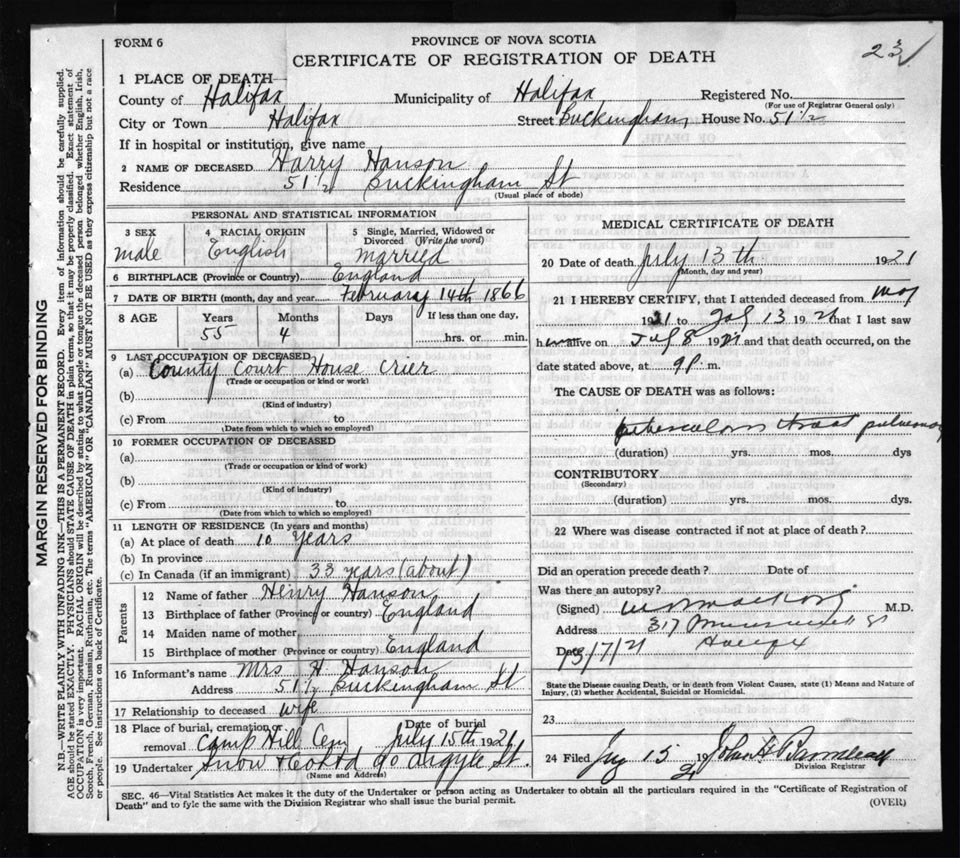 FORM 6
PROVINCE OF NOVA SCOTIA
CERTIFICATE OF REGISTRATION OF DEATH
23
1 PLACE OF DEATH
County of Halifax Municipality of Halifax Registered No.
(For use of Registrar General only)
City or Town Halifax Street Buckingham House No. 51½
If in hospital or institution, give name
2 NAME OF DECEASED Harry Hanson
Residence 51½ Buckingham St
(Usual place of abode)
PERSONAL AND STATISTICAL INFORMATION
3 SEX male
4 RACIAL ORIGIN English
5 Single, Married, Widowed or Divorced (Write the word) Married
6 BIRTHPLACE (Province or Country) England
7 DATE OF BIRTH (month, day and year) February 14th 1866
8 AGE Years Months Days If less than one day,
55 4 hrs. or min.
9 LAST OCCUPATION OF DECEASED
(a) County Court House Crier
(Trade or occupation or kind of work)
(b)
(Kind of industry)
(c) From to
(Date from which to which so employed)
10 FORMER OCCUPATION OF DECEASED
(a)
(Trade or occupation or kind of work)
(b)
(Kind of industry)
(c) From to
(Date from which to which so employed)
11 LENGTH OF RESIDENCE (In years and months)
(a) At place of death 10 years
(b) In province
(c) In Canada (if an immigrant) 33 years (about)
Parents
12 Name of father Henry Hanson
13 Birthplace of father (Province or country) England
14 Maiden name of mother
15 Birthplace of mother (Province or country) England
16 Informant's name Mrs H. Hanson
Address 51½ Buckingham St
17 Relationship to deceased wife
18 Place of burial, cremation or removal Camp Hill Cem Date of burial July 15th 1921
19 Undertaker Snow & Co Ltd 90 Argyle St.
(Name and Address)
MEDICAL CERTIFICATE OF DEATH
20 Date of death July 13th 1921
(Month, day and year)
21 I HEREBY CERTIFY, that I attended deceased from May
1921 to July 13 1921 that I last saw
him alive on July 8 1921 and that death occurred, on the
date stated above, at 9 P. m.
The CAUSE OF DEATH was as follows:
tuberculosis throat pulmonary
(duration) yrs. mos. dys
CONTRIBUTORY
(Secondary)
(duration) yrs. mos. dys.
22 Where was disease contracted if not at place of death?
Did an operation precede death? Date of
Was there an autopsy?
(Signed) M.D.
Address 317 St
Date 13/7/21 Halifax
State the Disease causing Death, or in death from Violent Causes, state (1) Means and Nature of Injury, (2) whether Accidental, Suicidal or Homicidal.
23
24 Filed 15 21 John H
Division Registrar
SEC. 46—Vital Statistics Act makes it the duty of the Undertaker or person acting as Undertaker to obtain all the particulars required in the "Certificate of Registration of
Death" and to fyle the same with the Division Registrar who shall issue the burial permit.
(OVER)
MARGIN RESERVED FOR BINDING
N.B.—WRITE PLAINLY WITH UNFADING INK—THIS IS A PERMANENT RECORD. Every item of information should be carefully supplied.
AGE should be stated EXACTLY. PHYSICIANS should STATE CAUSE OF DEATH in plain terms, so that it may be properly classified. Exact statement of
OCCUPATION is very important. RACIAL ORIGIN will be described by stating to what people or tongue the deceased person belonged whether English, Irish,
Scotch, French, German, Russian, Ruthenian, etc. The terms "AMERICAN" OR "CANADIAN" MUST NOT BE USED as they express citizenship but not a race
or people. See instructions on back of Certificate.